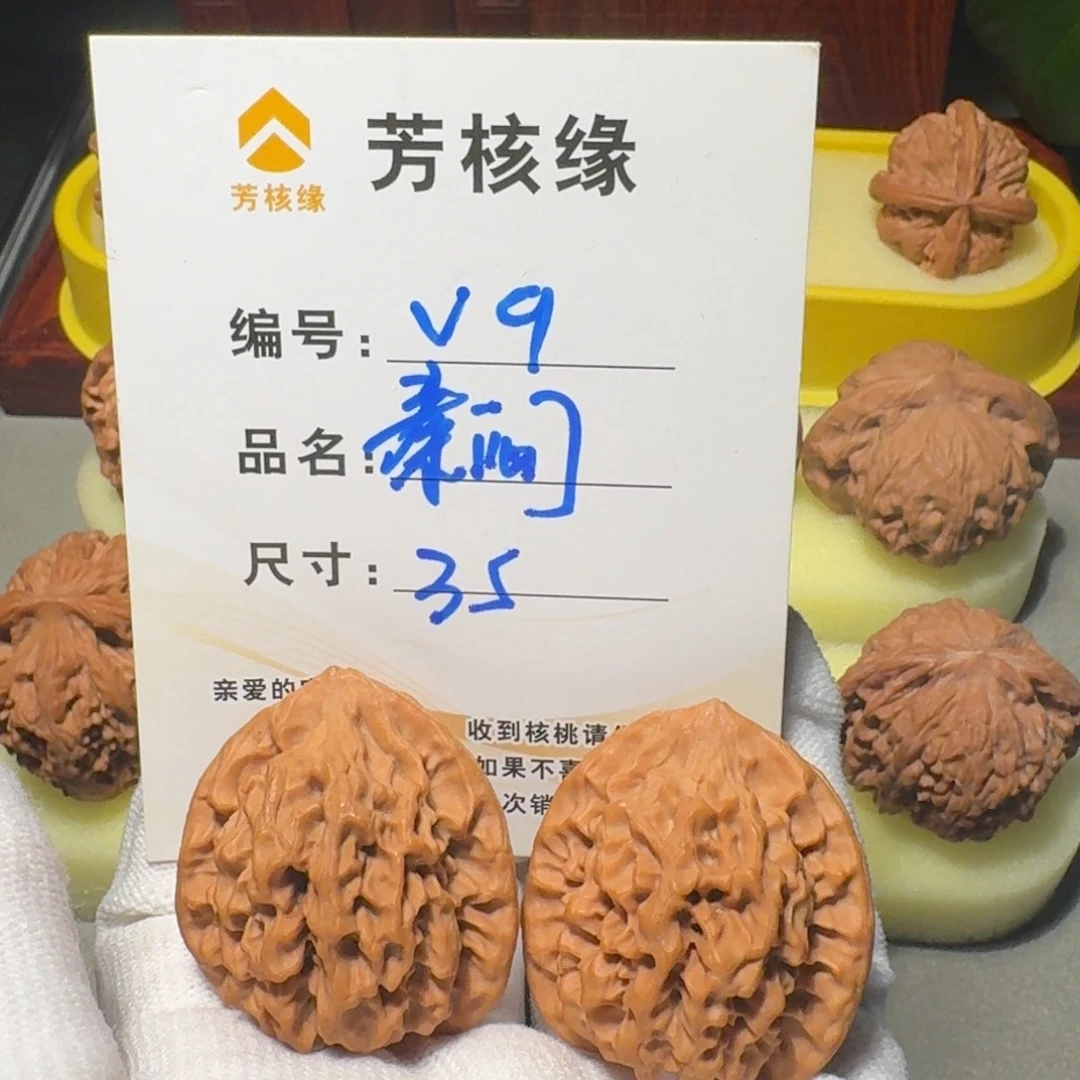 芳核缘
芳核缘
编号: V9
品名:
尺寸: 35
亲爱的
收到核桃请
如果不喜
次销